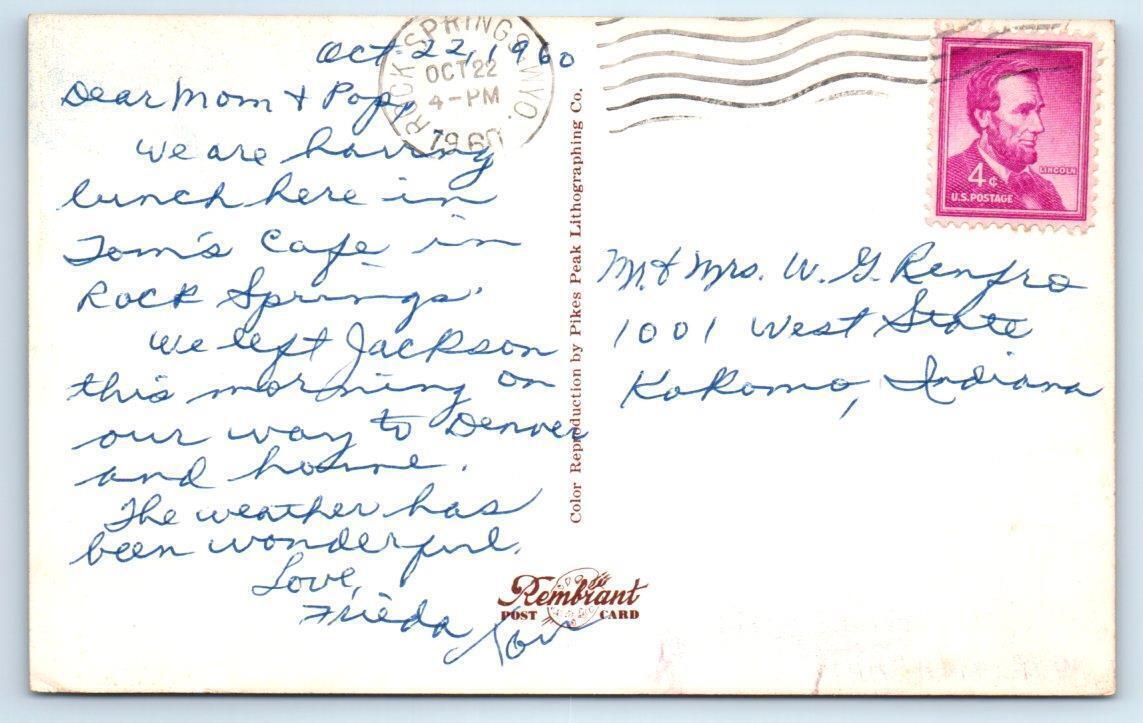 Oct. 22, 1960
Dear Mom & Pop,
We are having
lunch here in
Tom's Cafe in
Rock Springs.
We left Jackson
this morning on
our way to Denver
and home.
The weather has
been wonderful.
Love,
Frieda
ROCK SPRINGS WYO.
OCT 22
4-PM
1960
Color Reproduction by Pikes Peak Lithographing Co.
Rembrant
POST CARD
4¢
LINCOLN
U.S. POSTAGE
Mr & Mrs. W. G. Renfro
1001 West State
Kokomo, Indiana